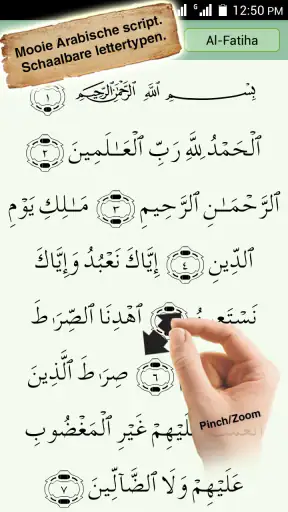 12:50 PM
Mooie Arabische script.
Schaalbare lettertypen.
Al-Fatiha
بِسْمِ ٱللَّهِ ٱلرَّحْمَـٰنِ ٱلرَّحِيمِ
١
ٱلْحَمْدُ لِلَّهِ رَبِّ ٱلْعَـٰلَمِينَ ٢
ٱلرَّحْمَـٰنِ ٱلرَّحِيمِ ٣ مَـٰلِكِ يَوْمِ
ٱلدِّينِ ٤ إِيَّاكَ نَعْبُدُ وَإِيَّاكَ
نَسْتَعِينُ ٱهْدِنَا ٱلصِّرَٰطَ
٦ صِرَٰطَ ٱلَّذِينَ
عَلَيْهِمْ غَيْرِ ٱلْمَغْضُوبِ
عَلَيْهِمْ وَلَا ٱلضَّآلِّينَ ٧
Pinch/Zoom